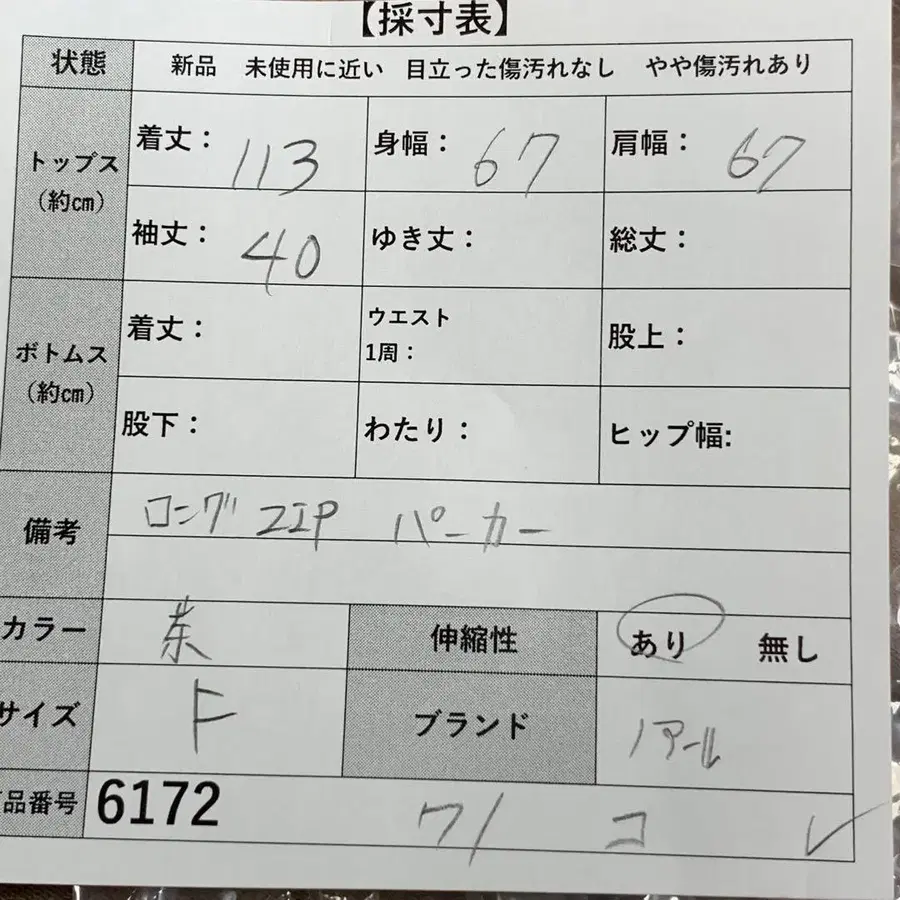 【採寸表】
状態 新品 未使用に近い 目立った傷汚れなし やや傷汚れあり
トップス（約㎝） 着丈： 113 身幅： 67 肩幅： 67
袖丈： 40 ゆき丈： 総丈：
ボトムス（約㎝） 着丈： ウエスト1周： 股上：
股下： わたり： ヒップ幅:
備考 ロング ZIP パーカー
カラー 茶 伸縮性 あり 無し
サイズ F ブランド ノアール
品番号 6172